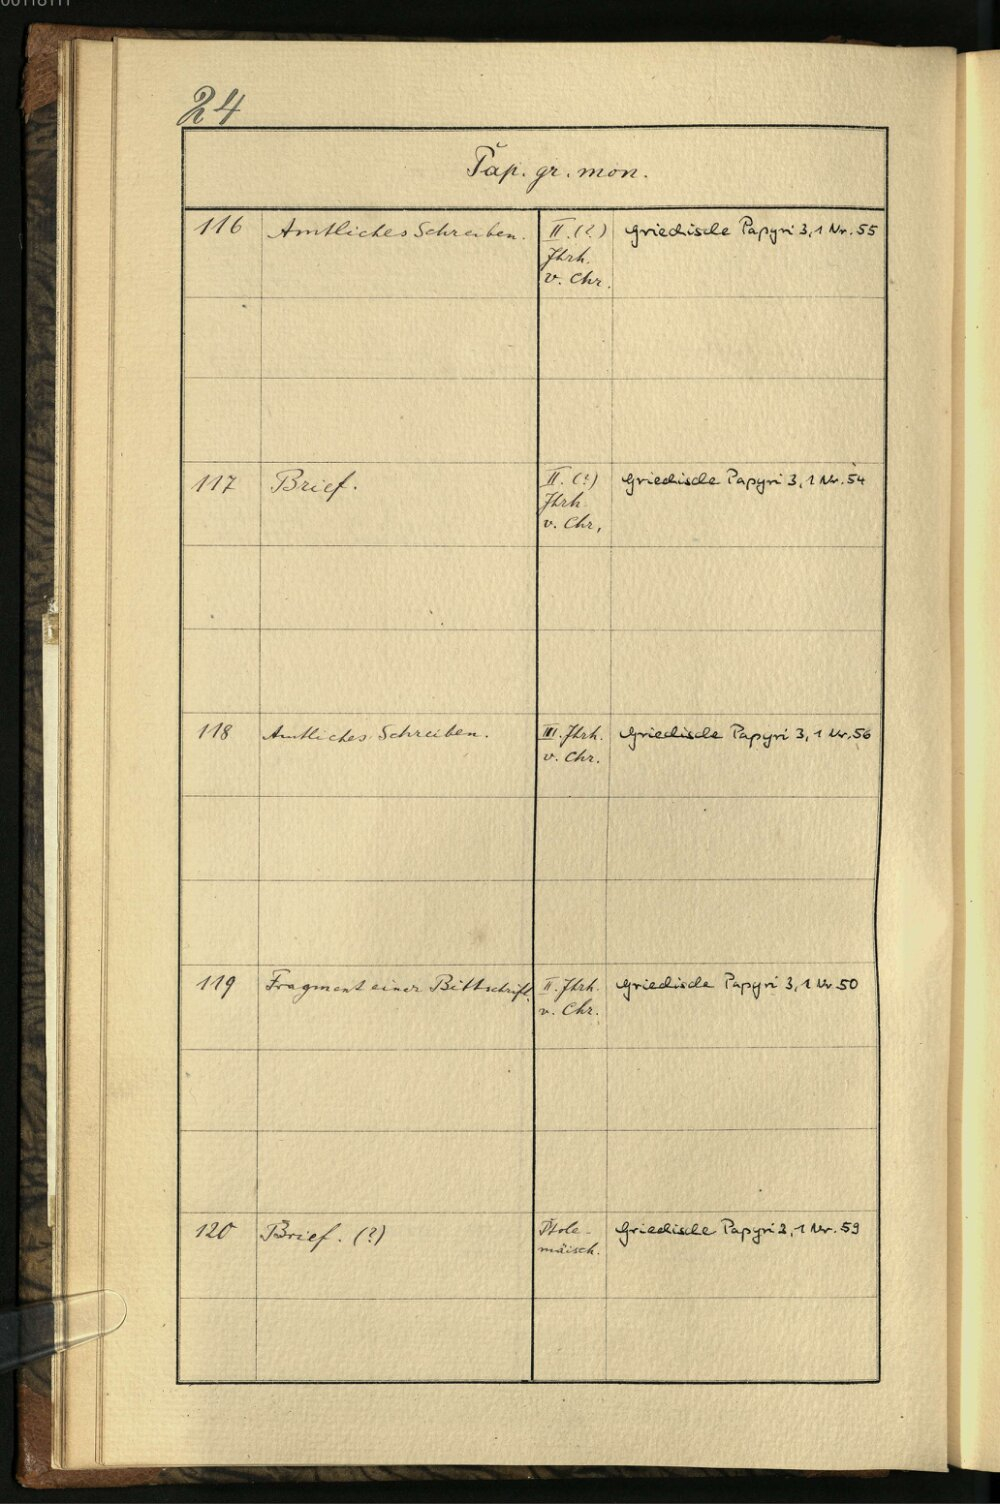 24
Pap. gr. mon.
116 Amtliches Schreiben. II. (?) Griechische Papyri 3,1 Nr. 55
Jhrh.
v. Chr.
117 Brief. II. (?) Griechische Papyri 3,1 Nr. 54
Jhrh
v. Chr.
118 Amtliches Schreiben. III. Jhrh. Griechische Papyri 3,1 Nr. 56
v. Chr.
119 Fragment einer Bittschrift. II. Jhrh. Griechische Papyri 3,1 Nr 50
v. Chr.
120 Brief. (?) Ptole- Griechische Papyri 3,1 Nr. 59
mäisch.